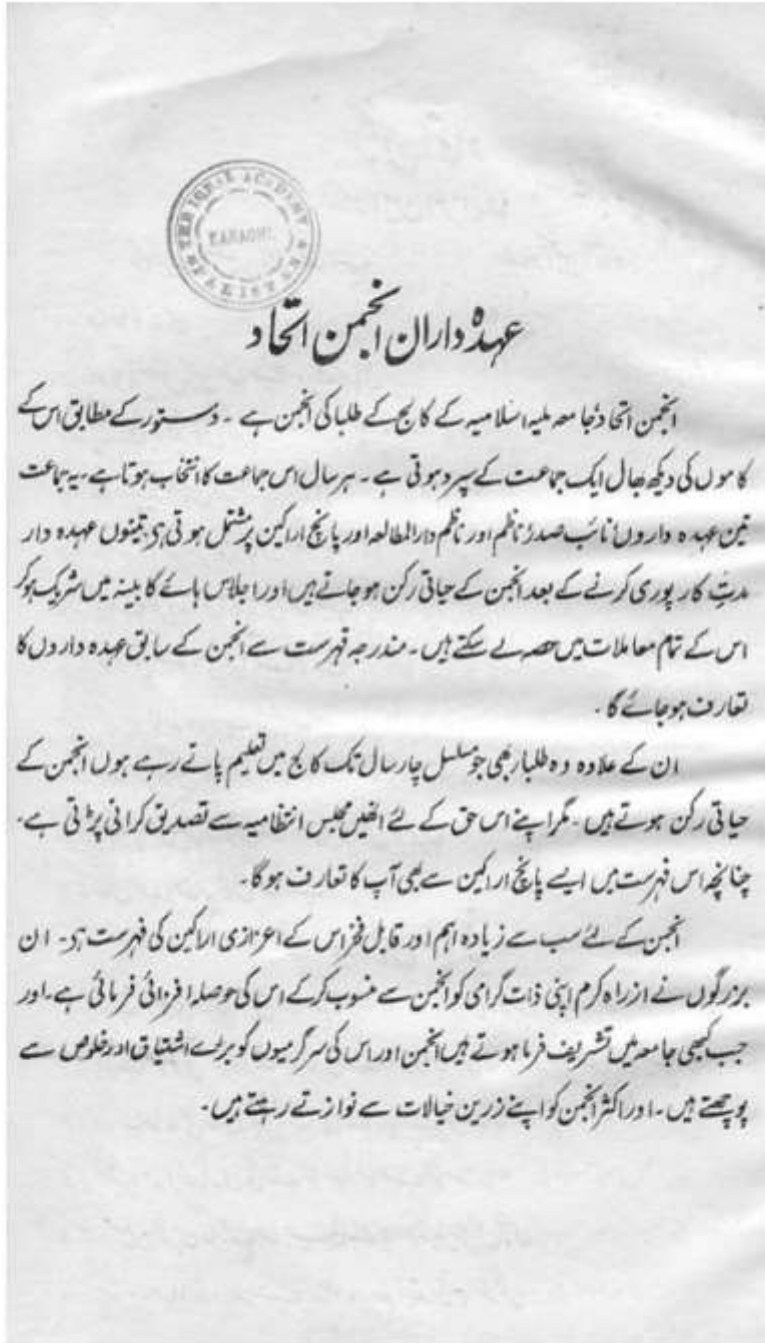 THE IQBAL ACADEMY
KARACHI
عہدہ داران انجمن اتحاد
انجمن اتحاد جامعہ ملیہ اسلامیہ کے کالج کے طلبا کی انجمن ہے ۔ دستور کے مطابق اس کے
کاموں کی دیکھ بھال ایک جماعت کے سپرد ہوتی ہے ۔ ہر سال اس جماعت کا انتخاب ہوتا ہے ۔ یہ جماعت
تین عہدہ داروں نائب صدر، ناظم اور ناظم دارالمطالعہ اور پانچ اراکین پر مشتمل ہوتی ہی تینوں عہدہ دار
مدتِ کار پوری کرنے کے بعد انجمن کے حیاتی رکن ہو جاتے ہیں اور اجلاس ہائے کابینہ میں شریک ہو کر
اس کے تمام معاملات میں حصہ لے سکتے ہیں ۔ مندرجہ فہرست سے انجمن کے سابق عہدہ داروں کا
تعارف ہو جائے گا ۔
ان کے علاوہ وہ طلبا بھی جو مسلسل چار سال تک کالج میں تعلیم پاتے رہے ہوں انجمن کے
حیاتی رکن ہوتے ہیں ۔ مگر اپنے اس حق کے لئے انھیں مجلس انتظامیہ سے تصدیق کرانی پڑتی ہے ۔
چنانچہ اس فہرست میں ایسے پانچ اراکین سے بھی آپ کا تعارف ہو گا ۔
انجمن کے لئے سب سے زیادہ اہم اور قابل فخر اس کے اعزازی اراکین کی فہرست ہی ۔ ان
بزرگوں نے از راہ کرم اپنی ذات گرامی کو انجمن سے منسوب کر کے اس کی حوصلہ افزائی فرمائی ہے ۔ اور
جب کبھی جامعہ میں تشریف فرما ہوتے ہیں انجمن اور اس کی سرگرمیوں کو بڑے اشتیاق اور خلوص سے
پوچھتے ہیں ۔ اور اکثر انجمن کو اپنے زرین خیالات سے نوازتے رہتے ہیں ۔